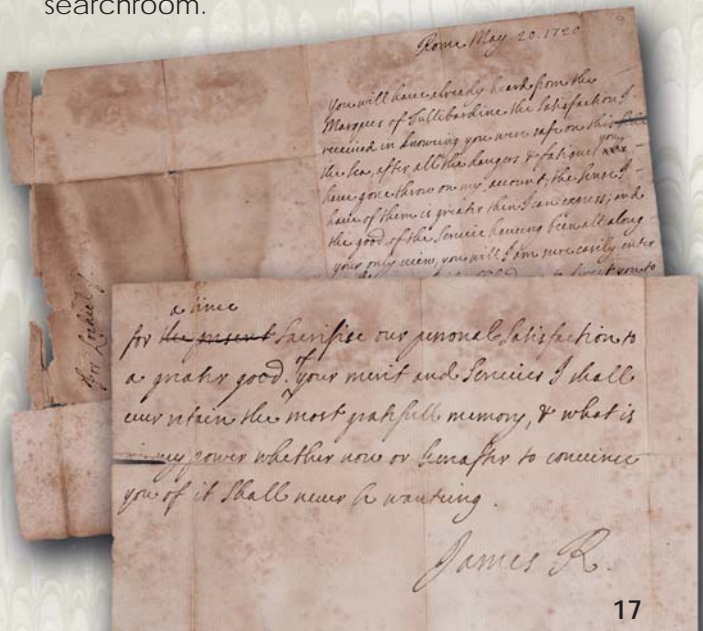 searchroom.
Rome May. 20. 1720
9
You will have already heard from the
Marques of Tullibardine the Satisfaction I
received in knowing you were safe on this side
the Sea, after all the dangers & fatigues you
have gone throw on my account; the sense I
have of them is greater then I can express; and
the good of the Service having been all along
your only view, you will I am sure easily enter
you to
For Locheil
a time
for the present Sacrifise our personal Satisfaction to
a greater good. Of your merit and Services I shall
ever retain the most gratefull memory, & what is
in my power whether now or hereafter to convince
you of it shall never be wanting.
James R.
17